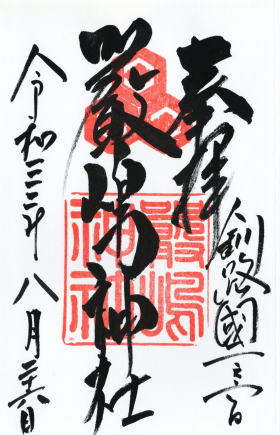 奉拝
釧路國一之宮
嚴島神社
嚴嶋
神社
令和三年八月二十六日